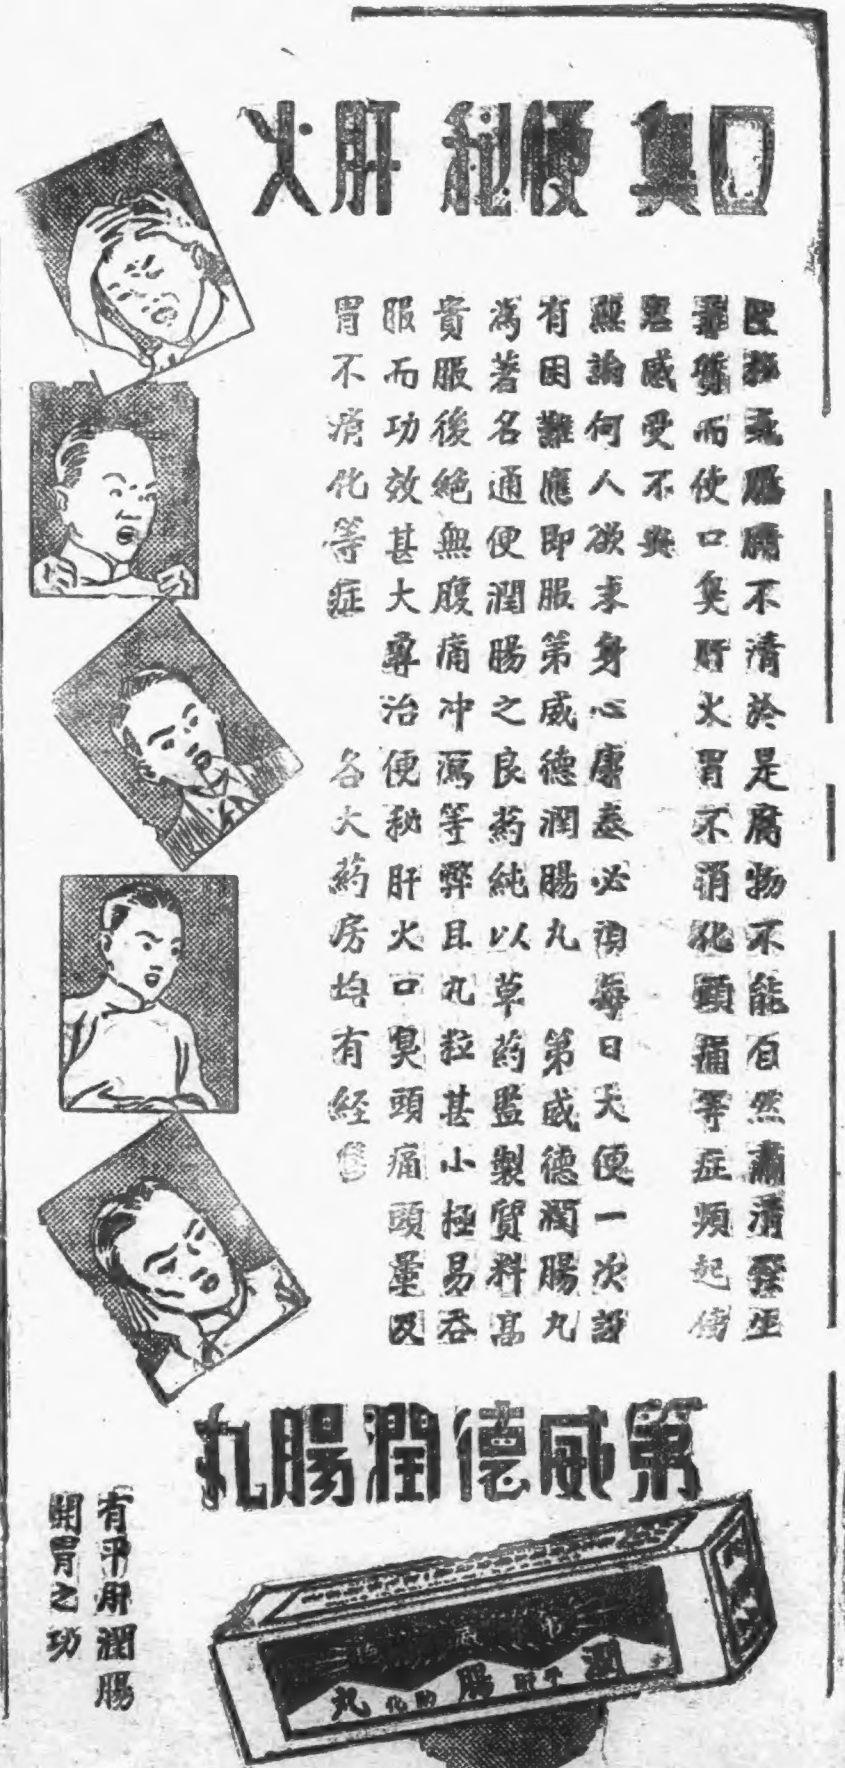 口臭 便秘 肝火
腸臟不清於是腐物不能自然肅清發生
毒質而使口臭肝火胃不消化頭痛等症頻起倍
感受不爽
無論何人欲求身心康泰必須每日大便一次設
有困難應即服第威德潤腸丸 第威德潤腸丸
為著名通便潤腸之良葯純以草葯監製質料高
貴服後絕無腹痛冲瀉等弊且丸粒甚小極易吞
服而功效甚大專治便秘肝火口臭頭痛頭暈及
胃不消化等症 各大葯房均有經售
第威德潤腸丸
潤平肝腸助化丸
有平肝潤腸
開胃之功